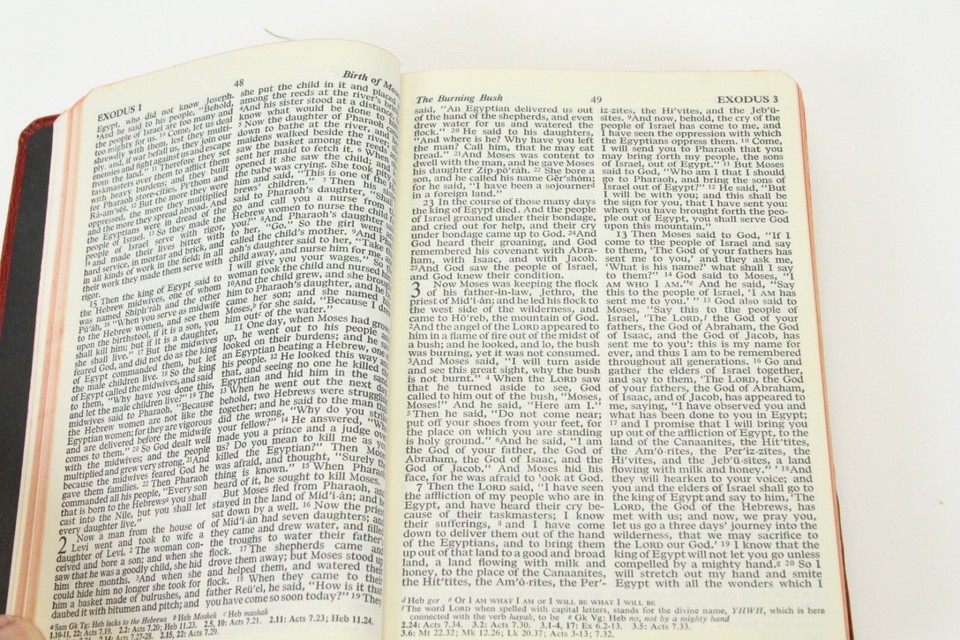 EXODUS 1
48
Birth of Mos
Egypt, who did not know Joseph.
⁹And he said to his people, “Behold,
the people of Israel are too many and
too mighty for us. ¹⁰Come, let us deal
shrewdly with them, lest they multi-
ply, and, if war befall us, they join our
enemies and fight against us and escape
from the land.” ¹¹Therefore they set
taskmasters over them to afflict them
with heavy burdens; and they built
for Pharaoh store-cities, Pī′thom and
Rā-am′sēs. ¹²But the more they were
oppressed, the more they multiplied
and the more they spread abroad. And
the Egyptians were in dread of the
people of Israel. ¹³So they made the
people of Israel serve with rigor,
¹⁴and made their lives bitter with
hard service, in mortar and brick, and
in all kinds of work in the field; in all
their work they made them serve with
rigor.
15 Then the king of Egypt said to
the Hebrew midwives, one of whom
was named Shiph′rah and the other
Pū′ah, ¹⁶“When you serve as midwife
to the Hebrew women, and see them
upon the birthstool, if it is a son, you
shall kill him; but if it is a daughter,
she shall live.” ¹⁷But the midwives
feared God, and did not do as the king
of Egypt commanded them, but let
the male children live. ¹⁸So the king
of Egypt called the midwives, and said
to them, “Why have you done this,
and let the male children live?” ¹⁹The
midwives said to Pharaoh, “Because
the Hebrew women are not like the
Egyptian women; for they are vigorous
and are delivered before the midwife
comes to them.” ²⁰So God dealt well
with the midwives; and the people
multiplied and grew very strong. ²¹And
because the midwives feared God he
gave them families. ²²Then Pharaoh
commanded all his people, “Every son
that is born to the Hebrewsᵃ you shall
cast into the Nile, but you shall let
every daughter live.”
2 Now a man from the house of
Levi went and took to wife a
daughter of Levi. ²The woman con-
ceived and bore a son; and when she
saw that he was a goodly child, she hid
him three months. ³And when she
could hide him no longer she took for
him a basket made of bulrushes, and
daubed it with bitumen and pitch; and
she put the child in it and placed
among the reeds at the river's
⁴And his sister stood at a distance,
know what would be done to
⁵Now the daughter of Pharaoh
down to bathe at the river, and
maidens walked beside the river;
saw the basket among the reeds
sent her maid to fetch it. ⁶When
opened it she saw the child; and
the babe was crying. She took pity
him and said, “This is one of the
brews' children.” ⁷Then his
said to Pharaoh's daughter, “Shall
go and call you a nurse from
Hebrew women to nurse the child
you?” ⁸And Pharaoh's daughter
to her, “Go.” So the girl went
called the child's mother. ⁹And Pha
aoh's daughter said to her, “Take
child away, and nurse him for me,
I will give you your wages.” So
woman took the child and nursed
¹⁰And the child grew, and she brough
him to Pharaoh's daughter, and he
came her son; and she named him
Moses,ᵇ for she said, “Because I dre
him outᶜ of the water.”
11 One day, when Moses had grow
up, he went out to his people
looked on their burdens; and he
an Egyptian beating a Hebrew, one
his people. ¹²He looked this way
that, and seeing no one he killed
Egyptian and hid him in the sand
¹³When he went out the next da
behold, two Hebrews were struggling
together; and he said to the man tha
did the wrong, “Why do you stri
your fellow?” ¹⁴He answered, “Wh
made you a prince and a judge over
us? Do you mean to kill me as yo
killed the Egyptian?” Then Mose
was afraid, and thought, “Surely th
thing is known.” ¹⁵When Pharao
heard of it, he sought to kill Moses.
But Moses fled from Pharaoh, and
stayed in the land of Mid′i·ən; and h
sat down by a well. ¹⁶Now the prie
of Mid′i·ən had seven daughters; an
they came and drew water, and filled
the troughs to water their father's
flock. ¹⁷The shepherds came and
drove them away; but Moses stood up
and helped them, and watered their
flock. ¹⁸When they came to their
father Reü′el, he said, “How is it that
you have come so soon today?” ¹⁹They
ᵃ Sam Gk Tg: Heb lacks to the Hebrews ᵇ Heb Mosheh ᶜ Heb mashah
1.10-11, 22: Acts 7.19. 2.2: Acts 7.20; Heb 11.23. 2.5, 10: Acts 7.21. 2.11: Acts 7.23; Heb 11.24.
Acts 7.27-28. 2.15, 22: Acts 7.29.
The Burning Bush
49
EXODUS 3
said, “An Egyptian delivered us out
of the hand of the shepherds, and even
drew water for us and watered the
flock.” ²⁰He said to his daughters,
“And where is he? Why have you left
the man? Call him, that he may eat
bread.” ²¹And Moses was content to
dwell with the man, and he gave Moses
his daughter Zip·pō′rah. ²²She bore a
son, and he called his name Gēr′shom;
for he said, “I have been a sojournerᵈ
in a foreign land.”
23 In the course of those many days
the king of Egypt died. And the people
of Israel groaned under their bondage,
and cried out for help, and their cry
under bondage came up to God. ²⁴And
God heard their groaning, and God
remembered his covenant with Abra-
ham, with Isaac, and with Jacob.
²⁵And God saw the people of Israel,
and God knew their condition.
3 Now Moses was keeping the flock
of his father-in-law, Jethro, the
priest of Mid′i·ən; and he led his flock to
the west side of the wilderness, and
came to Hō′reb, the mountain of God.
²And the angel of the LORD appeared to
him in a flame of fire out of the midst of
a bush; and he looked, and lo, the bush
was burning, yet it was not consumed.
³And Moses said, “I will turn aside
and see this great sight, why the bush
is not burnt.” ⁴When the LORD saw
that he turned aside to see, God
called to him out of the bush, “Moses,
Moses!” And he said, “Here am I.”
⁵Then he said, “Do not come near;
put off your shoes from your feet, for
the place on which you are standing
is holy ground.” ⁶And he said, “I am
the God of your father, the God of
Abraham, the God of Isaac, and the
God of Jacob.” And Moses hid his
face, for he was afraid to look at God.
7 Then the LORD said, “I have seen
the affliction of my people who are in
Egypt, and have heard their cry be-
cause of their taskmasters; I know
their sufferings, ⁸and I have come
down to deliver them out of the hand
of the Egyptians, and to bring them
up out of that land to a good and broad
land, a land flowing with milk and
honey, to the place of the Canaanites,
the Hit′tites, the Am′ō·rites, the Per′-
iz·zites, the Hi′vites, and the Jeb′ū-
sites. ⁹And now, behold, the cry of the
people of Israel has come to me, and
I have seen the oppression with which
the Egyptians oppress them. ¹⁰Come,
I will send you to Pharaoh that you
may bring forth my people, the sons
of Israel, out of Egypt.” ¹¹But Moses
said to God, “Who am I that I should
go to Pharaoh, and bring the sons of
Israel out of Egypt?” ¹²He said, “But
I will be with you; and this shall be
the sign for you, that I have sent you:
when you have brought forth the peo-
ple out of Egypt, you shall serve God
upon this mountain.”
13 Then Moses said to God, “If I
come to the people of Israel and say
to them, ‘The God of your fathers has
sent me to you,’ and they ask me,
‘What is his name?’ what shall I say
to them?” ¹⁴God said to Moses, “I
AM WHO I AM.”ᵉ And he said, “Say
this to the people of Israel, ‘I AM has
sent me to you.’ ” ¹⁵God also said to
Moses, “Say this to the people of
Israel, ‘The LORD,ᶠ the God of your
fathers, the God of Abraham, the God
of Isaac, and the God of Jacob, has
sent me to you’: this is my name for
ever, and thus I am to be remembered
throughout all generations. ¹⁶Go and
gather the elders of Israel together,
and say to them, ‘The LORD, the God
of your fathers, the God of Abraham,
of Isaac, and of Jacob, has appeared to
me, saying, “I have observed you and
what has been done to you in Egypt;
¹⁷and I promise that I will bring you
up out of the affliction of Egypt, to the
land of the Canaanites, the Hit′tites,
the Am′ō·rites, the Per′iz·zites, the
Hi′vites, and the Jeb′ū·sites, a land
flowing with milk and honey.” ’ ¹⁸And
they will hearken to your voice; and
you and the elders of Israel shall go to
the king of Egypt and say to him, ‘The
LORD, the God of the Hebrews, has
met with us; and now, we pray you,
let us go a three days' journey into the
wilderness, that we may sacrifice to
the LORD our God.’ ¹⁹I know that the
king of Egypt will not let you go unless
compelled by a mighty hand.ᵍ ²⁰So I
will stretch out my hand and smite
Egypt with all the wonders which I
ᵈ Heb ger ᵉ Or I AM WHAT I AM or I WILL BE WHAT I WILL BE
ᶠ The word LORD when spelled with capital letters, stands for the divine name, YHWH, which is here
connected with the verb hayah, to be ᵍ Gk Vg: Heb no, not by a mighty hand
2.24: Acts 7.34. 3.2: Acts 7.30. 3.1-4, 17: Ex 6.2-13. 3.5: Acts 7.33.
3.6: Mt 22.32; Mk 12.26; Lk 20.37; Acts 3-13; 7.32.